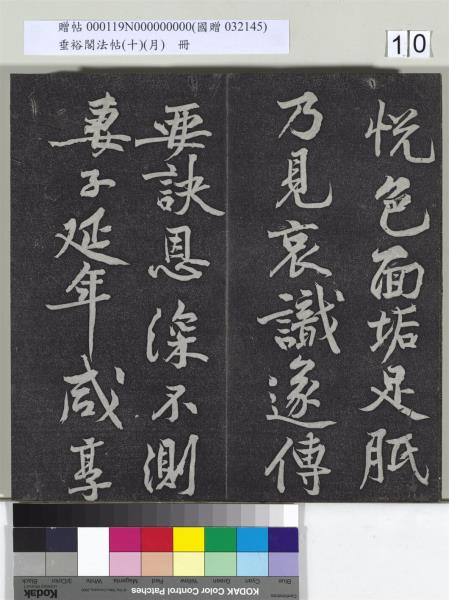 贈帖 000119N000000000(國贈 032145)
垂裕閣法帖(十)(月) 冊
10
悅色面垢足胝
乃見哀識遂傳
要訣恩深不測
妻子延年咸享
Blue Cyan Green Yellow Red Magenta White 3/Color Black
Kodak KODAK Color Control Patches